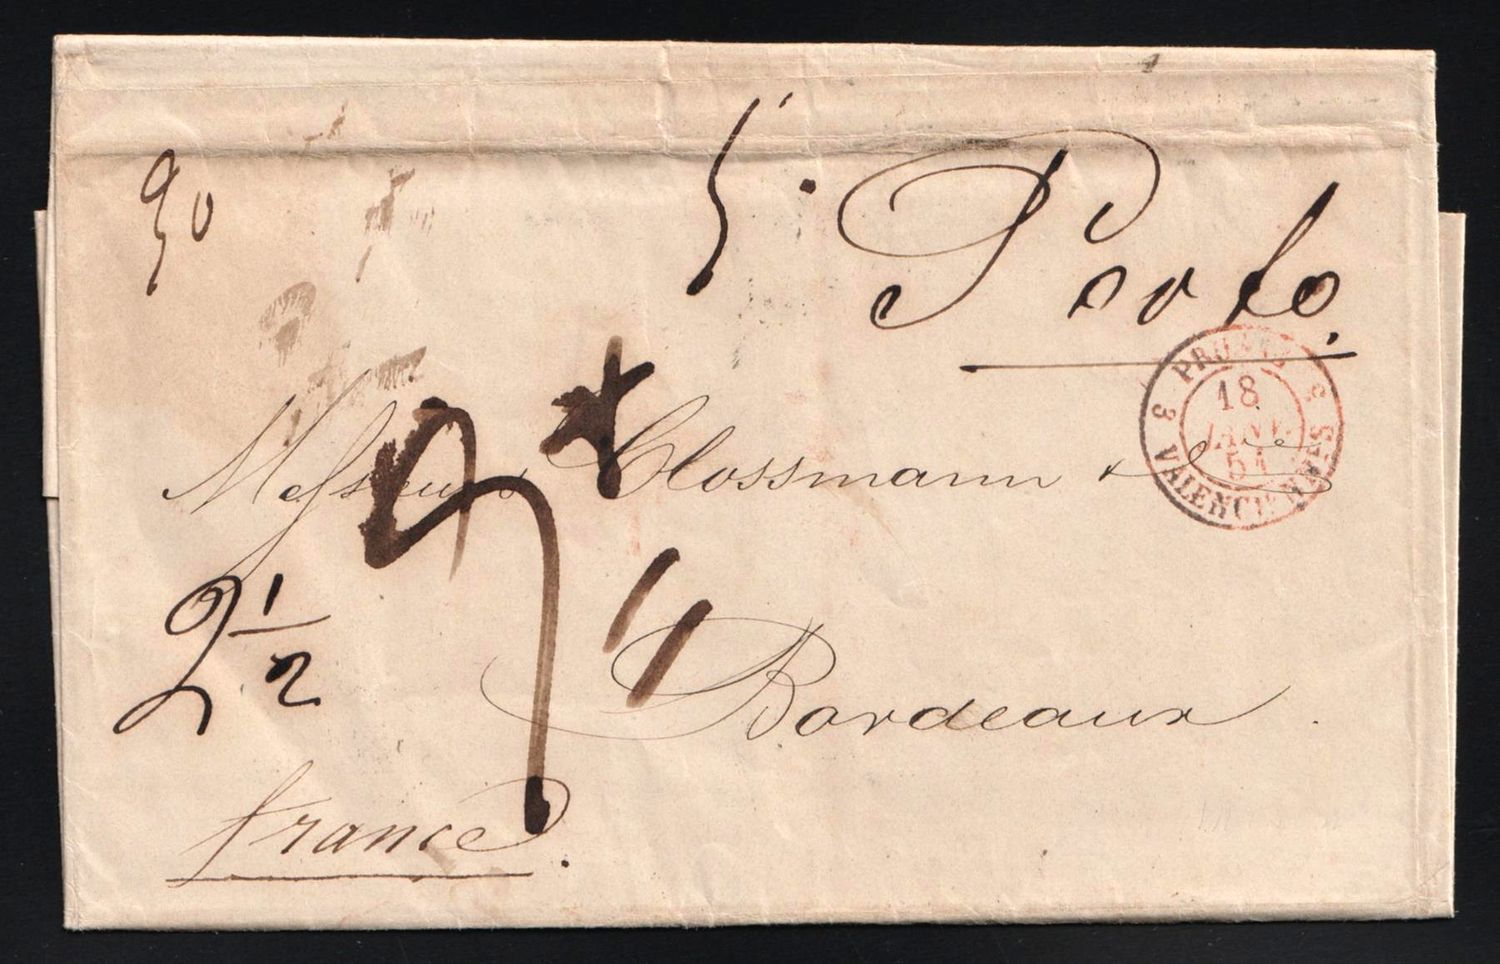 90
5
Porto.
PRUSSE
3
18
JANV.
51
VALENCIENNES
Messieurs Clossmann & Cie
2 1/2
Bordeaux.
france.